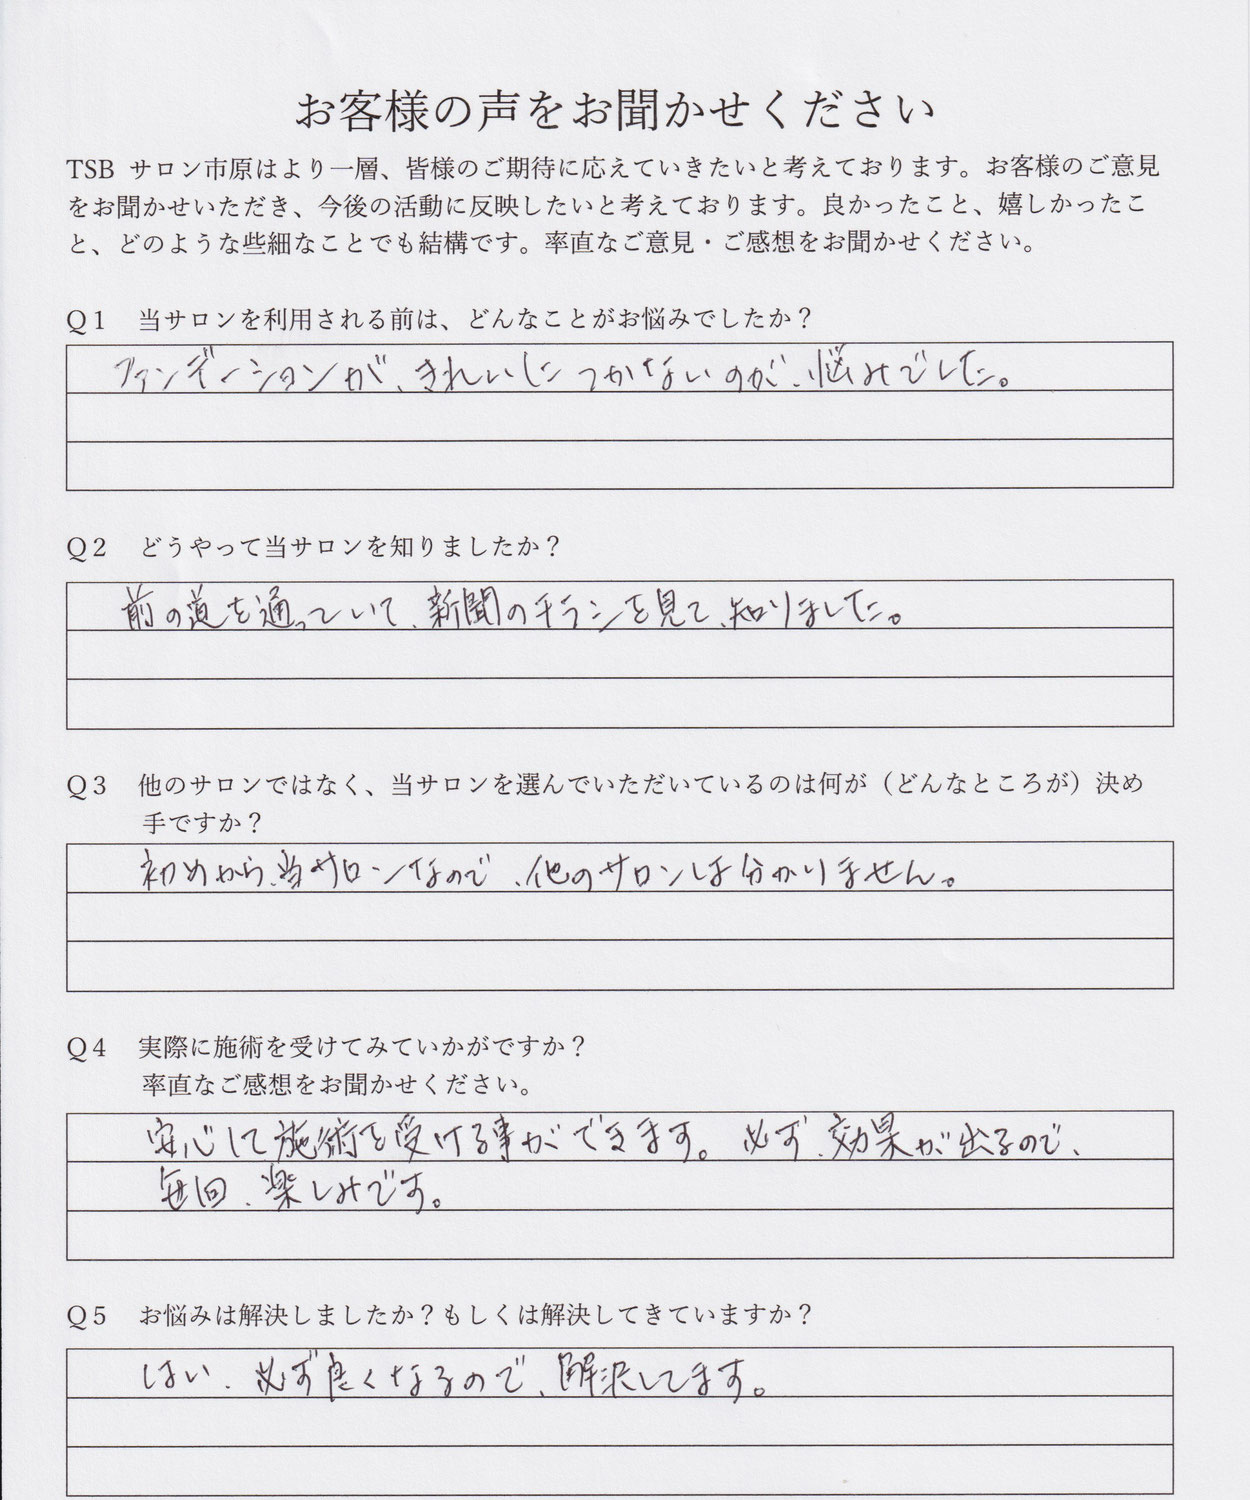 お客様の声をお聞かせください
TSB サロン市原はより一層、皆様のご期待に応えていきたいと考えております。お客様のご意見
をお聞かせいただき、今後の活動に反映したいと考えております。良かったこと、嬉しかったこ
と、どのような些細なことでも結構です。率直なご意見・ご感想をお聞かせください。
Q1 当サロンを利用される前は、どんなことがお悩みでしたか？
ファンデーションが、きれいにつかないのが、悩みでした。
Q2 どうやって当サロンを知りましたか？
前の道を通っていて、新聞のチラシを見て、知りました。
Q3 他のサロンではなく、当サロンを選んでいただいているのは何が（どんなところが）決め
手ですか？
初めから、当サロンなので、他のサロンは分かりません。
Q4 実際に施術を受けてみていかがですか？
率直なご感想をお聞かせください。
安心して施術を受ける事ができます。必ず、効果が出るので、
毎回、楽しみです。
Q5 お悩みは解決しましたか？もしくは解決してきていますか？
はい、必ず良くなるので、解決してます。